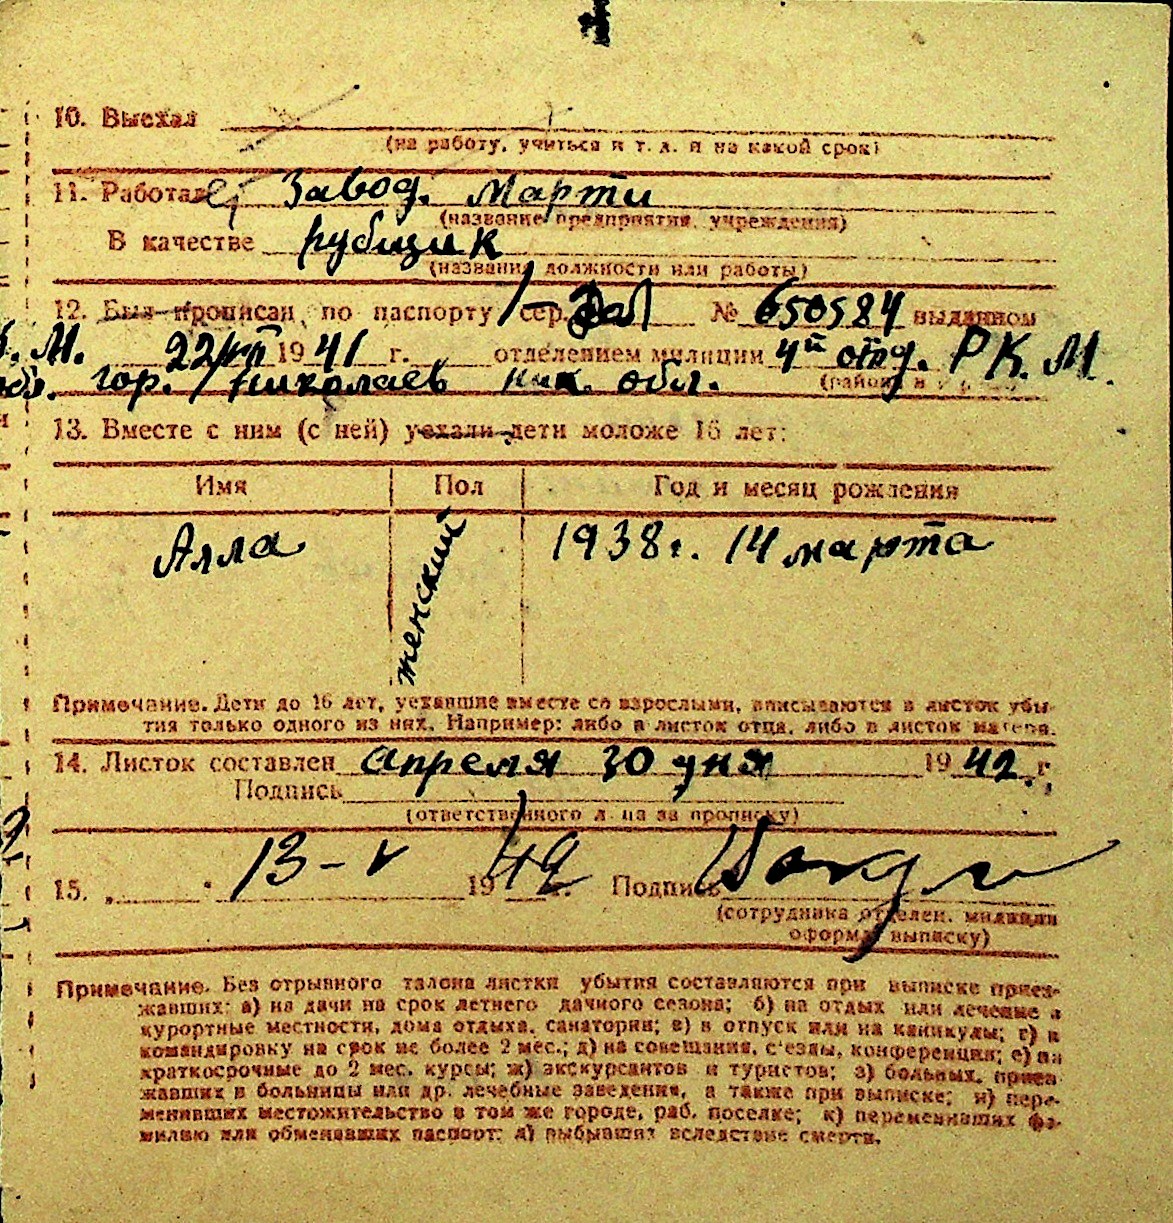 10. Выехал
(на работу, учиться и т. д. и на какой срок)
11. Работал Завод. Марти
(название предприятия, учреждения)
В качестве рубщик
(название должности или работы)
12. Был прописан по паспорту сер. № 650584 выданном
22/VII 1941 г. отделением милиции 4й отд. Р К. М.
гор. Николаев Ник. обл. (район, и
13. Вместе с ним (с ней) уехали дети моложе 16 лет:
Имя Пол Год и месяц рождения
Алла женский 1938 г. 14 марта
Примечание. Дети до 16 лет, уехавшие вместе со взрослыми, вписываются в листок убы-
тия только одного из них. Например: либо в листок отца, либо в листок матери.
14. Листок составлен Апреля 30 дня 1942 г.
Подпись
(ответственного лица за прописку)
15. 13-V 1942 г. Подпись
(сотрудника отделен. милиции
оформ. выписку)
Примечание. Без отрывного талона листки убытия составляются при выписке приез-
жавших: а) на дачи на срок летнего дачного сезона; б) на отдых или лечение в
курортные местности, дома отдыха, санатории; в) в отпуск или на каникулы; г) в
командировку на срок не более 2 мес.; д) на совещания, с'езды, конференции; е) на
краткосрочные до 2 мес. курсы; ж) экскурсантов и туристов; з) больных, приез-
жавших в больницы или др. лечебные заведения, а также при выписке; и) пере-
менивших местожительство в том же городе, раб. поселке; к) переменивших фа-
милию или обменявших паспорт; л) выбывших вследствие смерти.